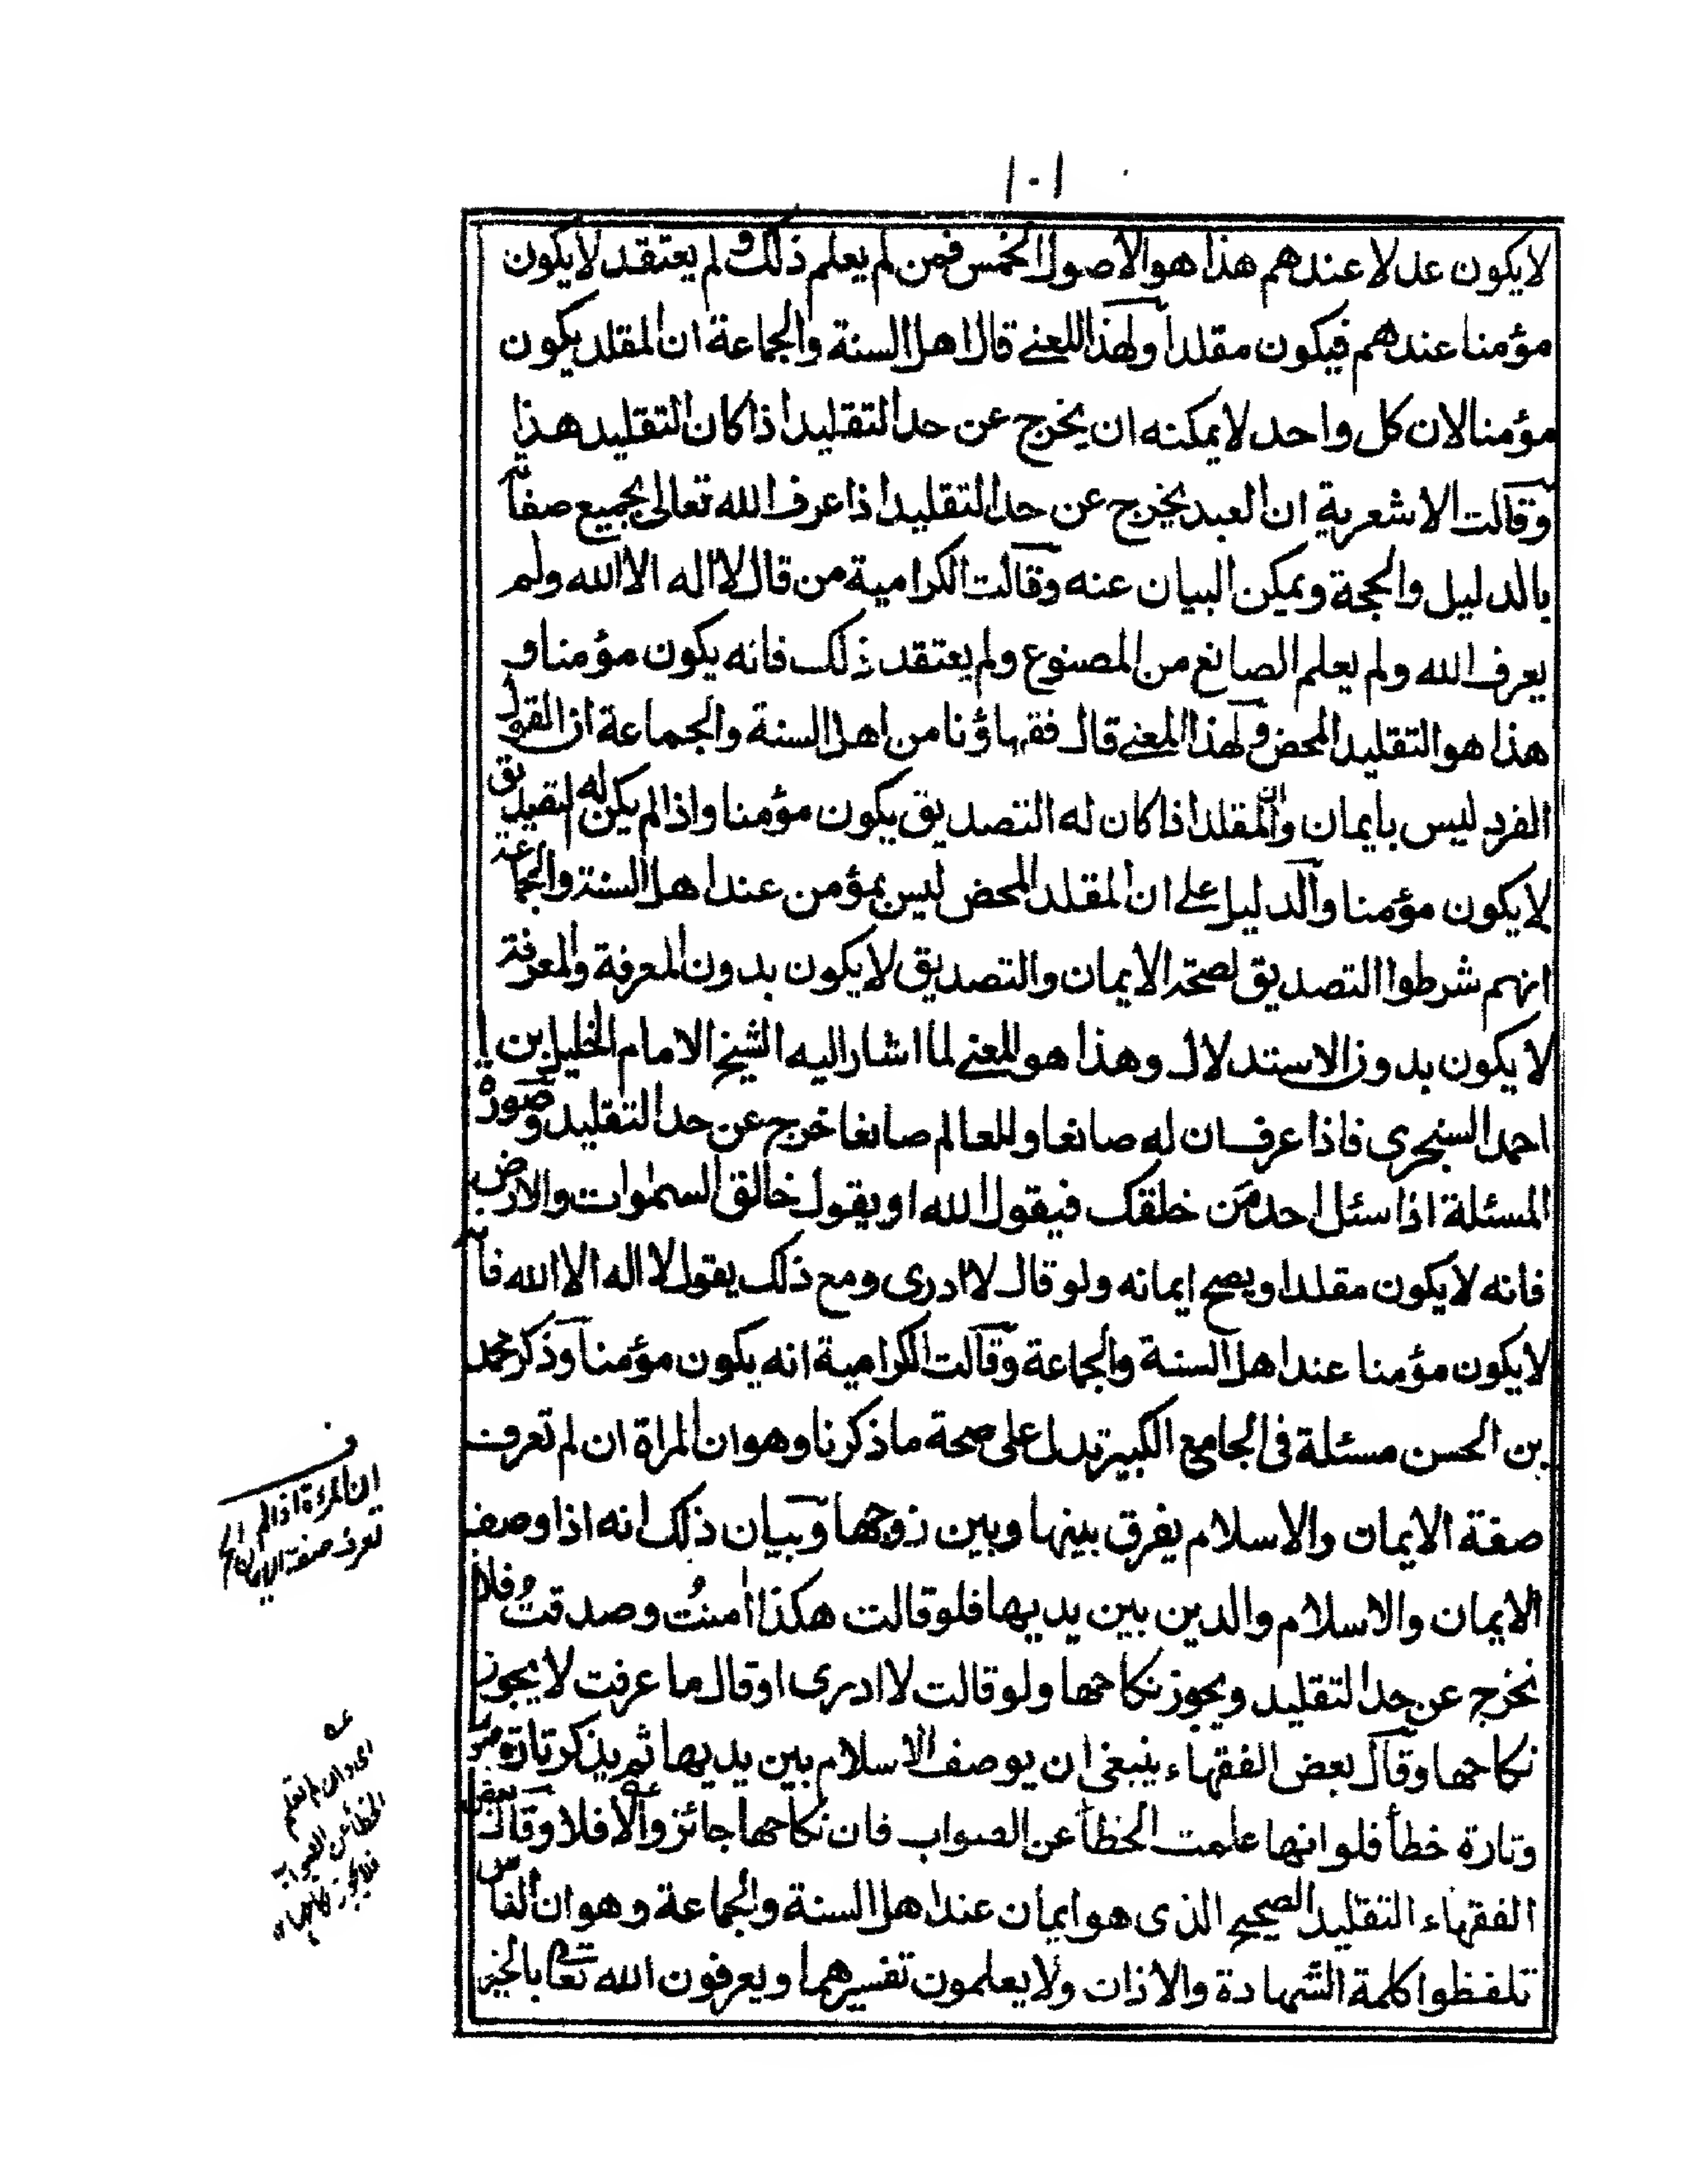 ١٠١
لا يكون عدلا عندهم هذا هو الاصول الخمس فمن لم يعلم ذلك و لم يعتقد لا يكون
مؤمنا عندهم فيكون مقلدا ولهذا المعنى قال اهل السنة والجماعة ان المقلد يكون
مؤمنا لان كل واحد لا يمكنه ان يخرج عن حد التقليد اذا كان التقليد هذا
وقالت الاشعرية ان العبد يخرج عن حد التقليد اذا عرف الله تعالى بجميع صفاته
بالدليل والحجة ويمكن البيان عنه وقالت الكرامية من قال لا اله الا الله ولم
يعرف الله ولم يعلم الصانع من المصنوع ولم يعتقد ذلك فانه يكون مؤمنا و
هذا هو التقليد المحض ولهذا المعنى قال فقهاؤنا من اهل السنة والجماعة ان القول
الفرد ليس بايمان وان المقلد اذا كان له التصديق يكون مؤمنا واذا لم يكن له التصديق
لا يكون مؤمنا والدليل على ان المقلد المحض ليس بمؤمن عند اهل السنة والجماعة
انهم شرطوا التصديق لصحة الايمان والتصديق لا يكون بدون المعرفة والمعرفة
لا يكون بدون الاستدلال وهذا هو المعنى لما اشار اليه الشيخ الامام الخليل بن
احمد السنجرى فاذا عرف ان له صانعا وللعالم صانعا خرج عن حد التقليد وصورة
المسئلة اذا سئل احد من خلقك فيقول الله او يقول خالق السموات والارض
فانه لا يكون مقلدا ويصح ايمانه ولو قال لا ادرى ومع ذلك يقول لا اله الا الله فانه
لا يكون مؤمنا عند اهل السنة والجماعة وقالت الكرامية انه يكون مؤمنا وذكر محمد
بن الحسن مسئلة فى الجامع الكبير تدل على صحة ما ذكرنا وهو ان المراة ان لم تعرف
صفة الايمان والاسلام يفرق بينها وبين زوجها وبيان ذلك انه اذا وصف
الايمان والاسلام والدين بين يديها فلو قالت هكذا امنتُ وصدقتُ فلا
تخرج عن حد التقليد ويجوز نكاحها ولو قالت لا ادرى او قال ما عرفت لا يجوز
نكاحها وقال بعض الفقهاء ينبغى ان يوصف الاسلام بين يديها ثم يذكر تارة
وتارة خطأ فلو انها علمت الخطأ عن الصواب فان نكاحها جائز والا فلا وقال بعض
الفقهاء التقليد الصحيح الذى هو ايمان عند اهل السنة والجماعة وهو ان الناس
تلفظوا كلمة الشهادة والاذان ولا يعلمون تفسيرهما ويعرفون الله تعا بالخير
ف
ان المرءة اذا لم
تعرف صفة الايمان
عه
اى وان لم تعلم
الخطأ عن الصواب
فلا يجوز نكاحها